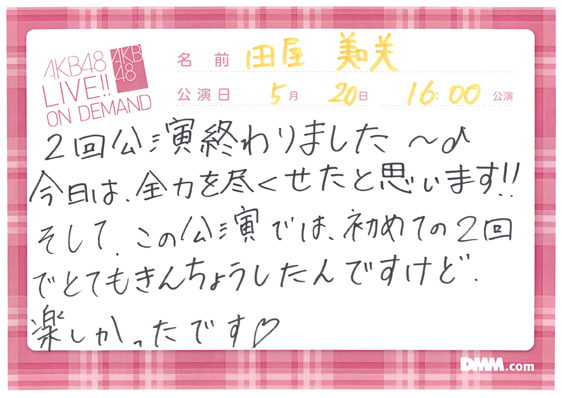 AKB48
LIVE!!
ON DEMAND
AKB
48
名前 田屋 美咲
公演日 5月 20日 16:00 公演
2回公演終わりました ～♪
今日は、全力を尽くせたと思います!!
そして、この公演では、初めての2回
でとてもきんちょうしたんですけど、
楽しかったです♡
DMM.com